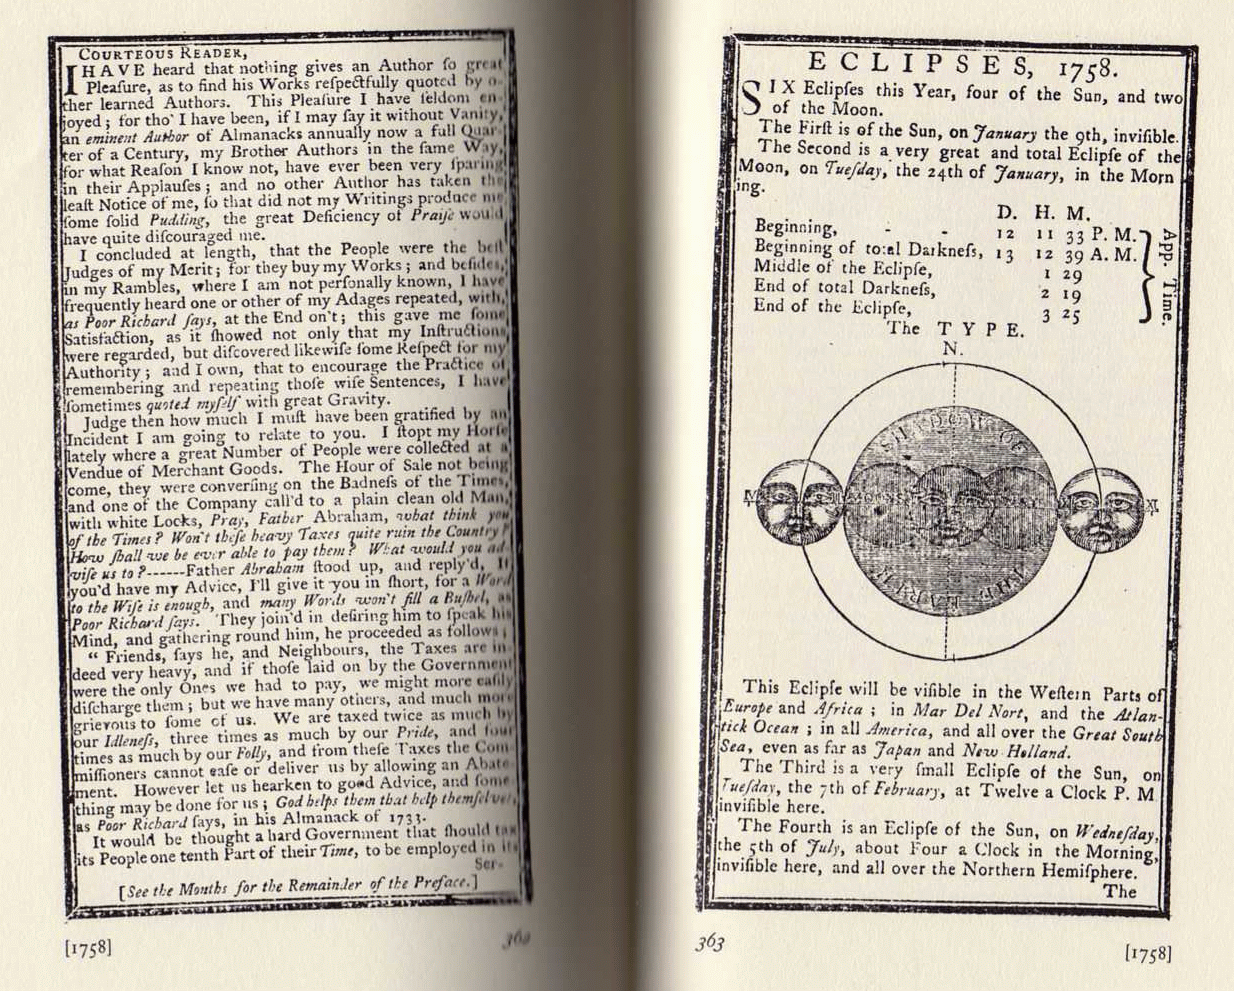 COURTEOUS READER,
I HAVE heard that nothing gives an Author ſo great
Pleaſure, as to find his Works reſpectfully quoted by o-
ther learned Authors. This Pleaſure I have ſeldom en-
joyed; for tho' I have been, if I may ſay it without Vanity,
an eminent Author of Almanacks annually now a full Quar-
ter of a Century, my Brother Authors in the ſame Way,
for what Reaſon I know not, have ever been very ſparing
in their Applauſes; and no other Author has taken the
leaſt Notice of me, ſo that did not my Writings produce me
ſome ſolid Pudding, the great Deficiency of Praiſe would
have quite diſcouraged me.
I concluded at length, that the People were the beſt
Judges of my Merit; for they buy my Works; and beſides,
in my Rambles, where I am not perſonally known, I have
frequently heard one or other of my Adages repeated, with,
as Poor Richard ſays, at the End on't; this gave me ſome
Satisfaction, as it ſhowed not only that my Inſtructions
were regarded, but diſcovered likewiſe ſome Reſpect for my
Authority; and I own, that to encourage the Practice of
remembering and repeating thoſe wiſe Sentences, I have
ſometimes quoted myſelf with great Gravity.
Judge then how much I muſt have been gratified by an
Incident I am going to relate to you. I ſtopt my Horſe
lately where a great Number of People were collected at a
Vendue of Merchant Goods. The Hour of Sale not being
come, they were converſing on the Badneſs of the Times,
and one of the Company call'd to a plain clean old Man,
with white Locks, Pray, Father Abraham, what think you
of the Times? Won't theſe heavy Taxes quite ruin the Country?
How ſhall we be ever able to pay them? What would you ad-
viſe us to?------Father Abraham ſtood up, and reply'd, If
you'd have my Advice, I'll give it you in ſhort, for a Word
to the Wiſe is enough, and many Words won't fill a Buſhel, as
Poor Richard ſays. They join'd in deſiring him to ſpeak his
Mind, and gathering round him, he proceeded as follows;
“ Friends, ſays he, and Neighbours, the Taxes are in-
deed very heavy, and if thoſe laid on by the Government
were the only Ones we had to pay, we might more eaſily
diſcharge them; but we have many others, and much more
grievous to ſome of us. We are taxed twice as much by
our Idleneſs, three times as much by our Pride, and four
times as much by our Folly, and from theſe Taxes the Com-
miſſioners cannot eaſe or deliver us by allowing an Abate-
ment. However let us hearken to good Advice, and ſome-
thing may be done for us; God helps them that help themſelves,
as Poor Richard ſays, in his Almanack of 1733.
It would be thought a hard Government that ſhould tax
its People one tenth Part of their Time, to be employed in its
Ser-
[See the Months for the Remainder of the Preface.]
[1758]
362
ECLIPSES, 1758.
SIX Eclipſes this Year, four of the Sun, and two
of the Moon.
The Firſt is of the Sun, on January the 9th, inviſible.
The Second is a very great and total Eclipſe of the
Moon, on Tueſday, the 24th of January, in the Morn
ing.
D. H. M.
Beginning, - - 12 11 33 P. M.
Beginning of total Darkneſs, 13 12 39 A. M.
Middle of the Eclipſe, 1 29
End of total Darkneſs, 2 19
End of the Eclipſe, 3 25
App. Time.
The TYPE.
N.
SHADOW OF
THE EARTH
This Eclipſe will be viſible in the Weſtern Parts of
Europe and Africa; in Mar Del Nort, and the Atlan-
tick Ocean; in all America, and all over the Great South
Sea, even as far as Japan and New Holland.
The Third is a very ſmall Eclipſe of the Sun, on
Tueſday, the 7th of February, at Twelve a Clock P. M
inviſible here.
The Fourth is an Eclipſe of the Sun, on Wedneſday,
the 5th of July, about Four a Clock in the Morning,
inviſible here, and all over the Northern Hemiſphere.
The
363
[1758]